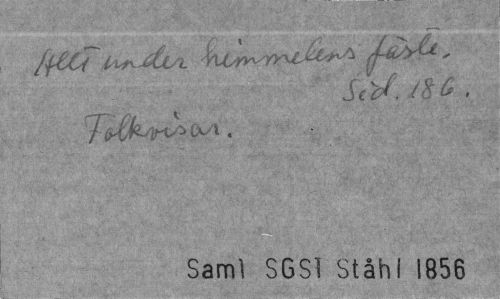 Allt under himmelens fäste.
Sid. 186.
Folkvisor.
Saml SGSl Ståhl 1856